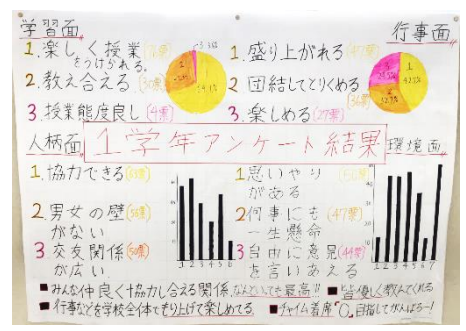 学習面
1.楽しく授業
をうけられる.
2.教え合える(30票)
3.授業態度良し(4票)
行事面
1.盛り上がれる(47票)
2.団結してとりくめる
(36票)
3.楽しめる(27票)
1学年アンケート結果
人柄面
1.協力できる
2.男女の壁(56票)
がない
3 交友関係(50票)
が広い
1 2 3 4 5 6
環境面
1思いやり
がある
2何事にも(47票)
一生懸命
3自由に意見(44票)
を言いあえる
1 2 3 4 5 6 7
■みんな仲良く協力し合える関係、なんといっても最高!!
■皆優しく教えてくれる
■行事などを学校全体でもり上げて楽しめてる
■チャイム着席"0"目指してがんばるー!